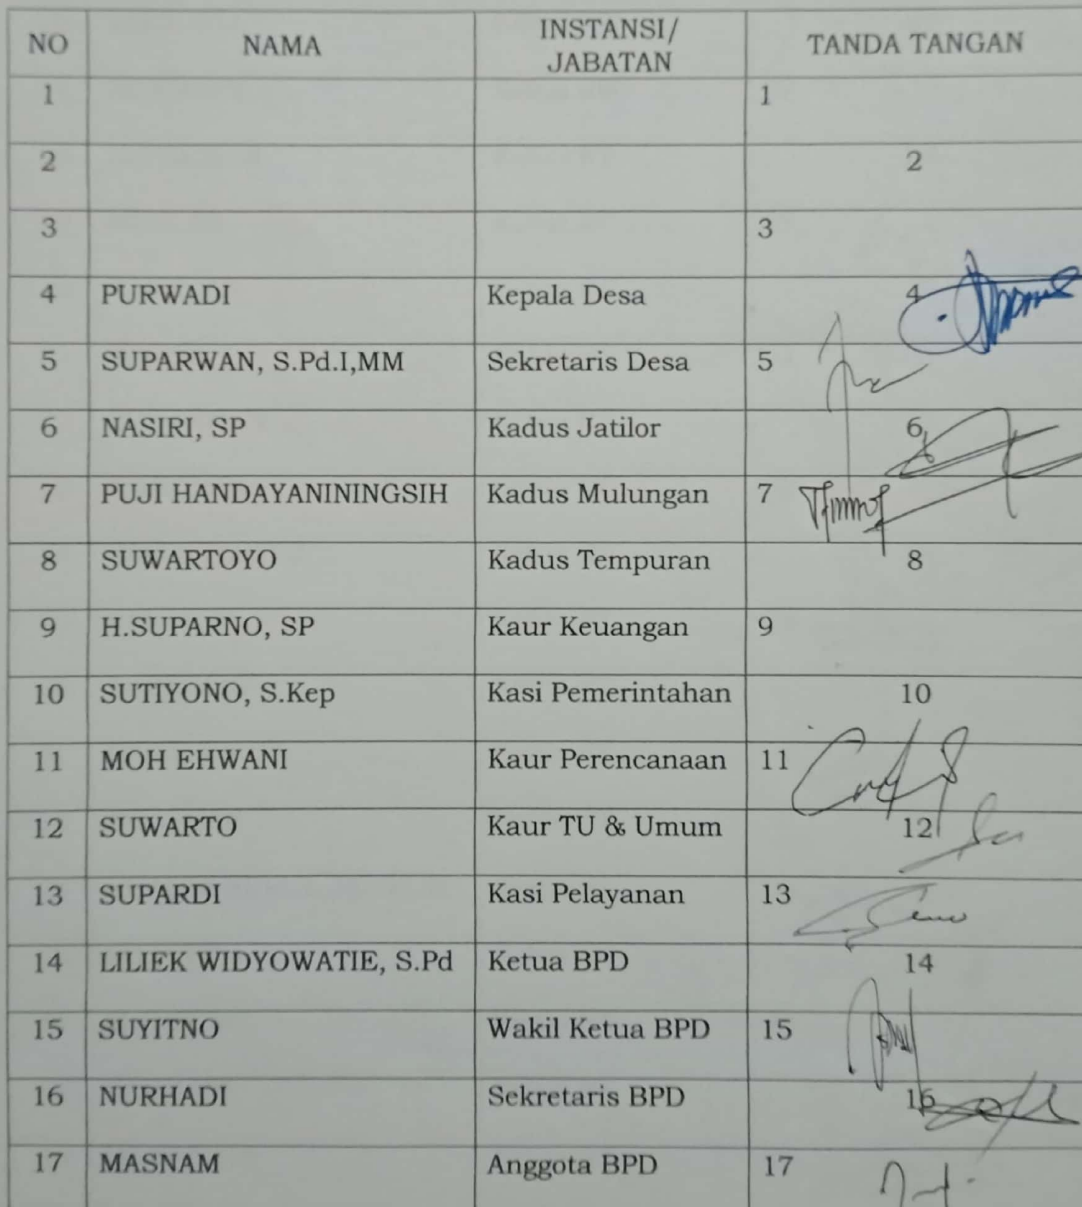 NO NAMA INSTANSI/ JABATAN TANDA TANGAN
1 1
2 2
3 3
4 PURWADI Kepala Desa 4
5 SUPARWAN, S.Pd.I,MM Sekretaris Desa 5
6 NASIRI, SP Kadus Jatilor 6
7 PUJI HANDAYANININGSIH Kadus Mulungan 7
8 SUWARTOYO Kadus Tempuran 8
9 H.SUPARNO, SP Kaur Keuangan 9
10 SUTIYONO, S.Kep Kasi Pemerintahan 10
11 MOH EHWANI Kaur Perencanaan 11
12 SUWARTO Kaur TU & Umum 12
13 SUPARDI Kasi Pelayanan 13
14 LILIEK WIDYOWATIE, S.Pd Ketua BPD 14
15 SUYITNO Wakil Ketua BPD 15
16 NURHADI Sekretaris BPD 16
17 MASNAM Anggota BPD 17